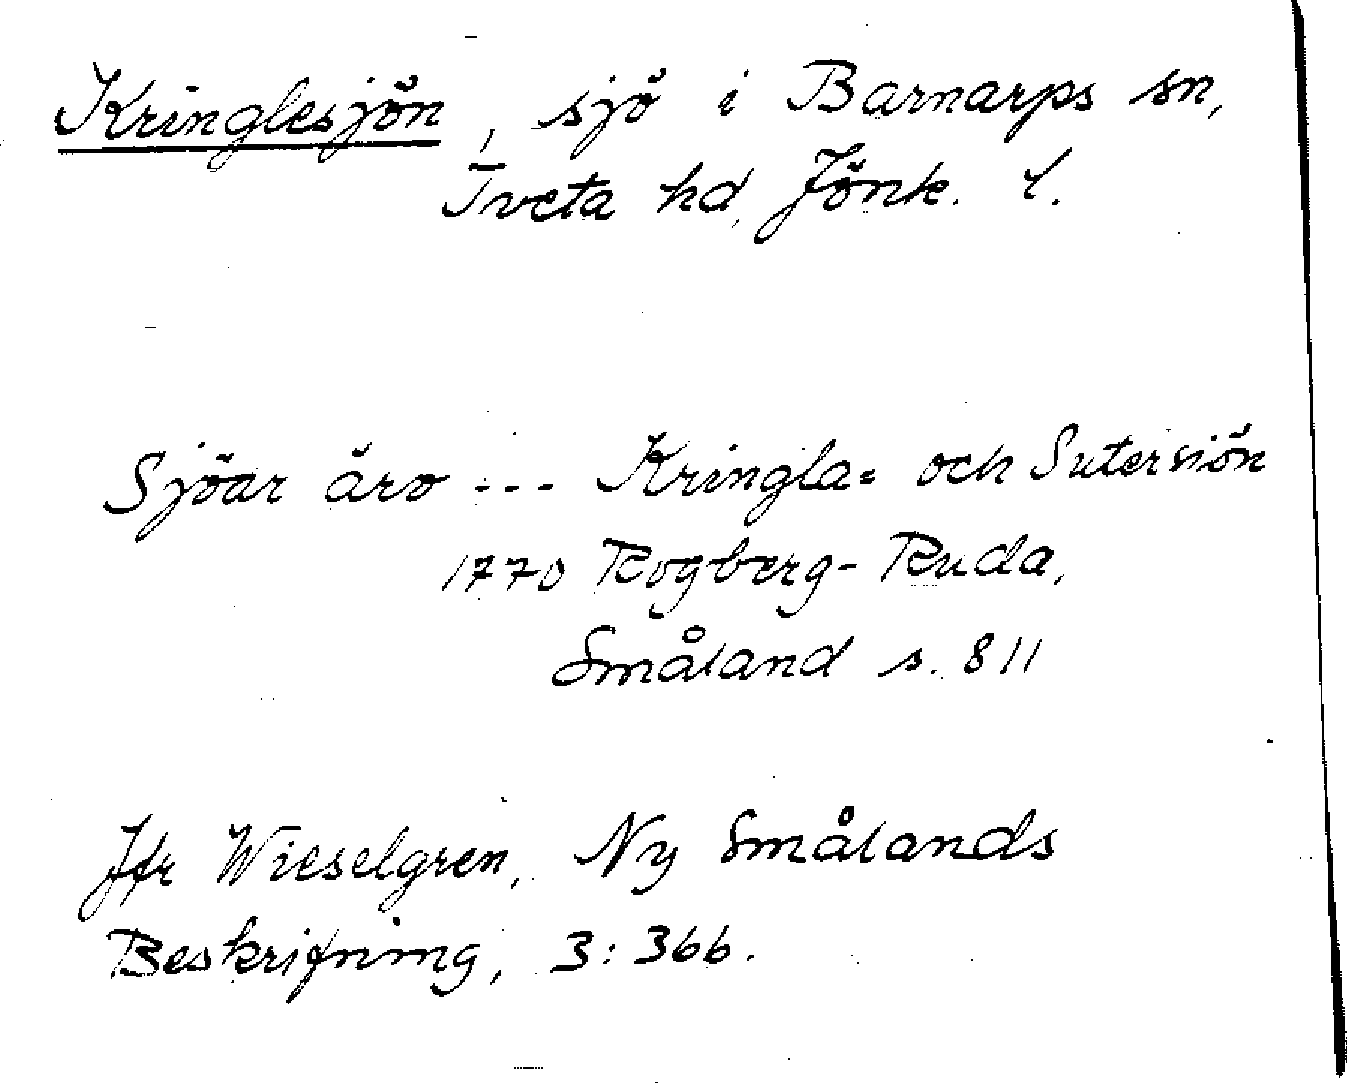 Kringlesjön, sjö i Barnarps sn,
Tveta hd, Jönk. l.
Sjöar äro --- Kringla= och Sutersiön
1770 Rogberg-Ruda,
Småland s. 811
Jfr Wieselgren, Ny Smålands
Beskrifning, 3:366.